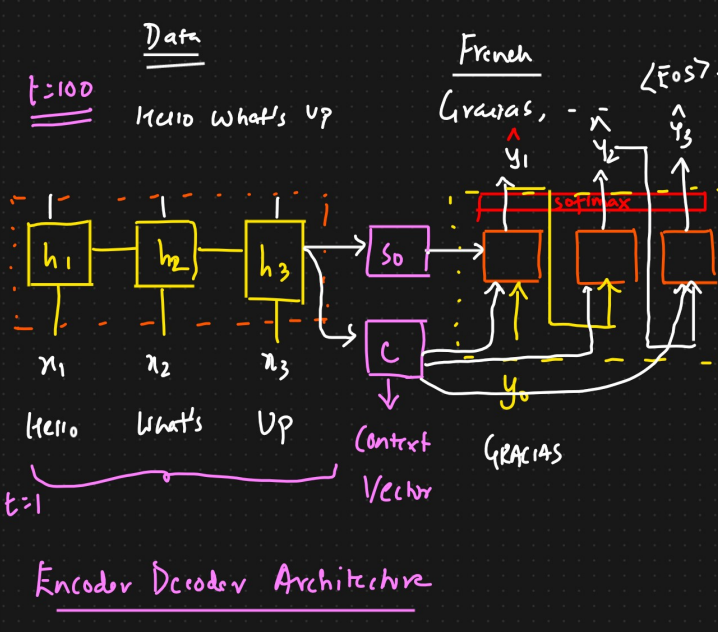 Data
French
t=100
<EOS>
Hello What's Up
Gracias, - -
ŷ1
ŷ2
ŷ3
softmax
h1
h2
h3
S0
C
x1
x2
x3
y0
Hello
What's
Up
Context
Vector
GRACIAS
t=1
Encoder Decoder Architecture